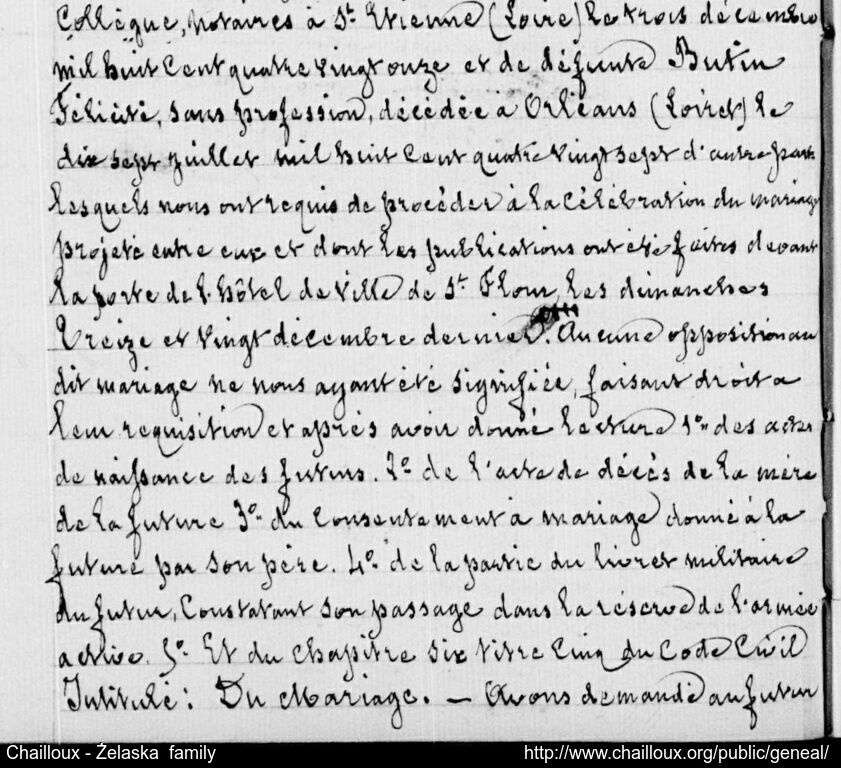 Collègue, notaires à St Etienne (Loire) le trois décembre
mil huit cent quatre vingt onze et de défunte Butin
Félicité, sans profession, décédée à Orléans (Loiret) le
dix sept juillet mil huit cent quatre vingt sept d'autre part
lesquels nous ont requis de procéder à la célébration du mariage
projeté entre eux et dont les publications ont été faites devant
la porte de l'hôtel de ville de St Flour, les dimanches
treize et vingt décembre dernier. Aucune opposition au
dit mariage ne nous ayant été signifiée, faisant droit a
leur requisition et après avoir donné lecture 1° des actes
de naissance des futurs. 2° de l'acte de décès de la mère
de la future 3° du consentement à mariage donné à la
future par son père. 4° de la partie du livret militaire
du futur, constatant son passage dans la réserve de l'armée
active. 5° Et du chapitre six titre cinq du Code Civil
Intitulé : Du Mariage. — Avons demandé au futur
Chailloux - Żelaska family
http://www.chailloux.org/public/geneal/